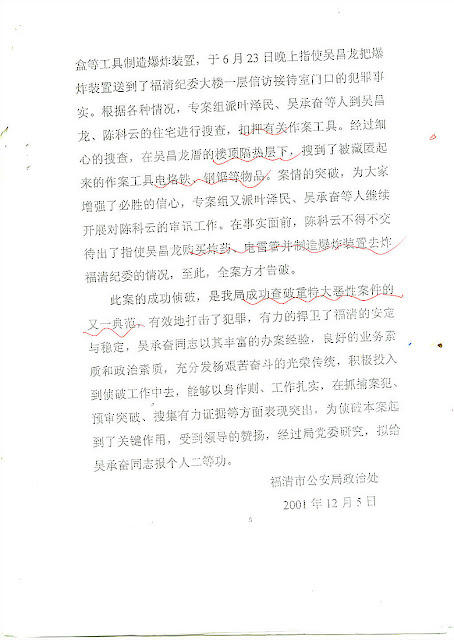 盒等工具制造爆炸装置，于6月23日晚上指使吴昌龙把爆
炸装置送到了福清纪委大楼一层信访接待室门口的犯罪事
实。根据各种情况，专案组派叶泽民、吴承奋等人到吴昌
龙、陈科云的住宅进行搜查，扣押有关作案工具。经过细
心的搜查，在吴昌龙厝的楼顶隔热层下，搜到了被藏匿起
来的作案工具电烙铁、钢锯等物品。案情的突破，为大家
增强了必胜的信心，专案组又派叶泽民、吴承奋等人继续
开展对陈科云的审讯工作。在事实面前，陈科云不得不交
待出了指使吴昌龙购买炸药、电雷管并制造爆炸装置去炸
福清纪委的情况，至此，全案方才告破。
此案的成功侦破，是我局成功查破重特大恶性案件的
又一典范，有效地打击了犯罪，有力的捍卫了福清的安定
与稳定，吴承奋同志以其丰富的办案经验，良好的业务素
质和政治素质，充分发扬艰苦奋斗的光荣传统，积极投入
到侦破工作中去，能够以身作则、工作扎实，在抓捕案犯、
预审突破、搜集有力证据等方面表现突出，为侦破本案起
到了关键作用，受到领导的赞扬，经过局党委研究，拟给
吴承奋同志报个人二等功。
福清市公安局政治处
2001年12月5日